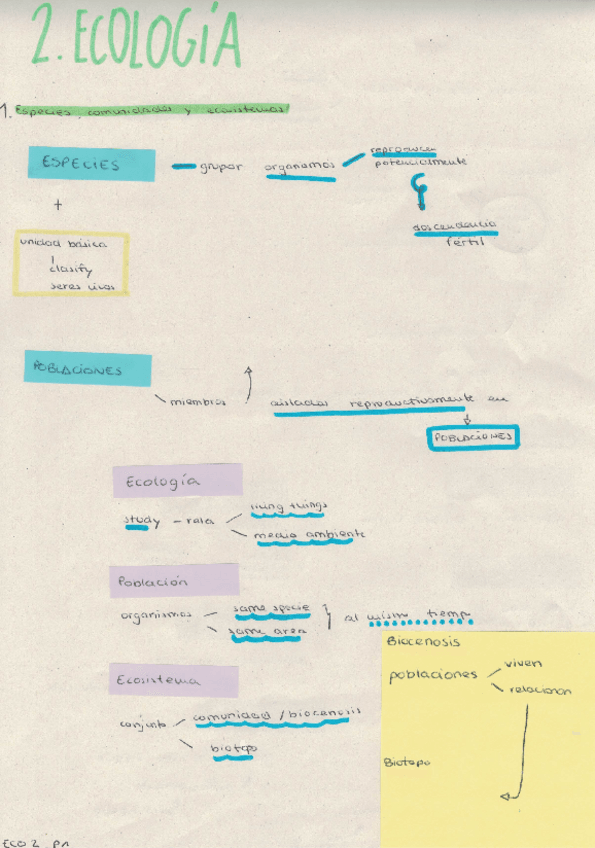 2. ECOLOGÍA
1. Especies, comunidades y ecosistemas
ESPECIES
grupor organismos
reproducen
potencialmente
descendencia
fértil
+
unidad básica
clasify
seres vivos
POBLACIONES
miembros
aisladas reproductivamente en
POBLACIONES
Ecología
study - rela
living things
medio ambiente
Población
organismos
same specie
same area
al mismo tiemp
Ecosistema
conjunto
comunidad / biocenosis
biotopo
Biocenosis
poblaciones
viven
relacionan
Biotopo
ECO 2 P1